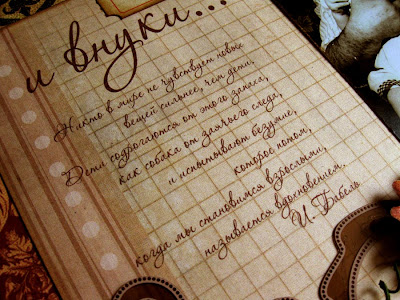 и внуки...
Никто в мире не чувствует новых
вещей сильнее, чем дети.
Дети содрогаются от этого запаха,
как собака от заячьего следа,
и испытывают безумие,
которое потом,
когда мы становимся взрослыми,
называется вдохновением.
И. Бабель